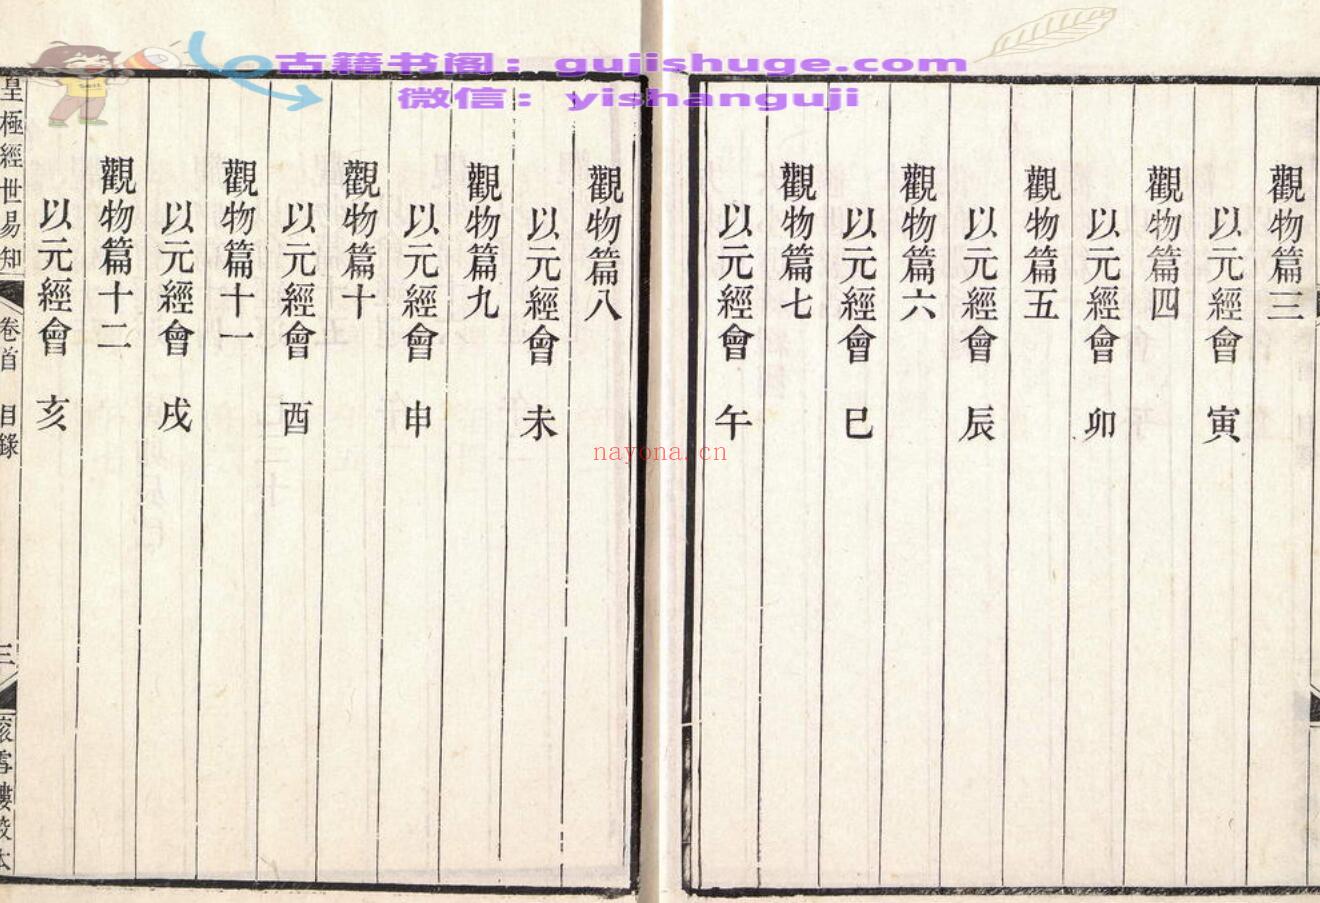 古籍书阁：gujishuge.com
微信：yishanguji
觀物篇三
以元經會 寅
觀物篇四
以元經會 卯
觀物篇五
以元經會 辰
觀物篇六
以元經會 巳
觀物篇七
以元經會 午
觀物篇八
以元經會 未
觀物篇九
以元經會 申
觀物篇十
以元經會 酉
觀物篇十一
以元經會 戌
觀物篇十二
以元經會 亥
皇極經世易知 卷首 目錄 三
nayona.cn